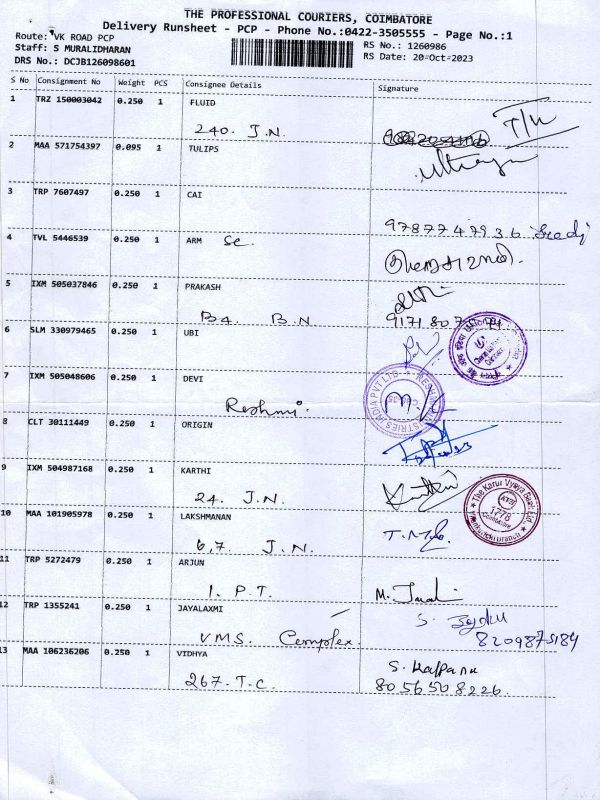 THE PROFESSIONAL COURIERS, COIMBATORE
Delivery Runsheet - PCP - Phone No.:0422-3505555 - Page No.:1
Route: VK ROAD PCP
Staff: S MURALIDHARAN
DRS No.: DCJB126098601
RS No.: 1260986
RS Date: 20-Oct-2023
S No Consignment No Weight PCS Consignee Details Signature
1 TRZ 150003042 0.250 1 FLUID
240. J.N.
2 MAA 571754397 0.095 1 TULIPS
3 TRP 7607497 0.250 1 CAI
9787747936
4 TVL 5446539 0.250 1 ARM Se.
5 IXM 505037846 0.250 1 PRAKASH
B4 B.N
6 SLM 330979465 0.250 1 UBI
7 IXM 505048606 0.250 1 DEVI
Reshmi.
8 CLT 30111449 0.250 1 ORIGIN
9 IXM 504987168 0.250 1 KARTHI
24. J.N. Karthi
The Karur Vysya Bank Ltd.
1778
COIMBATORE
10 MAA 101905978 0.250 1 LAKSHMANAN
6,7 J.N.
11 TRP 5272479 0.250 1 ARJUN
1. P.T.
12 TRP 1355241 0.250 1 JAYALAXMI
VMS. Complex
13 MAA 106236206 0.250 1 VIDHYA
S. Kalpana
267. T.C. 8056508226.